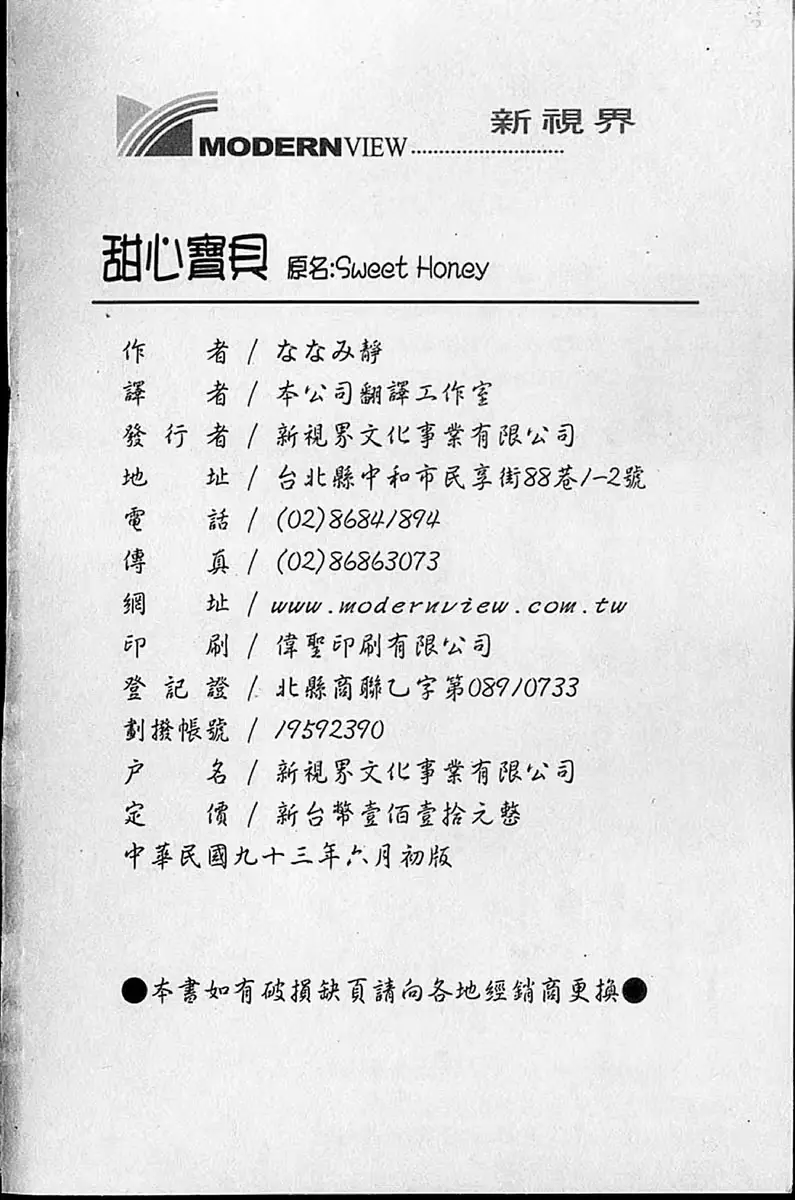 新視界
MODERNVIEW
甜心寶貝 原名:Sweet Honey
作者/ななみ靜
譯者/本公司翻譯工作室
發行者/新視界文化事業有限公司
地址/台北縣中和市民享街88巷1-2號
電話/(02)86841894
傳真/(02)86863073
網址/www.modernview.com.tw
印刷/偉聖印刷有限公司
登記證/北縣商聯乙字第08910733
劃撥帳號/19592390
户名/新視界文化事業有限公司
定價/新台幣壹佰壹拾元整
中華民國九十三年六月初版
●本書如有破損缺頁請向各地經銷商更換●